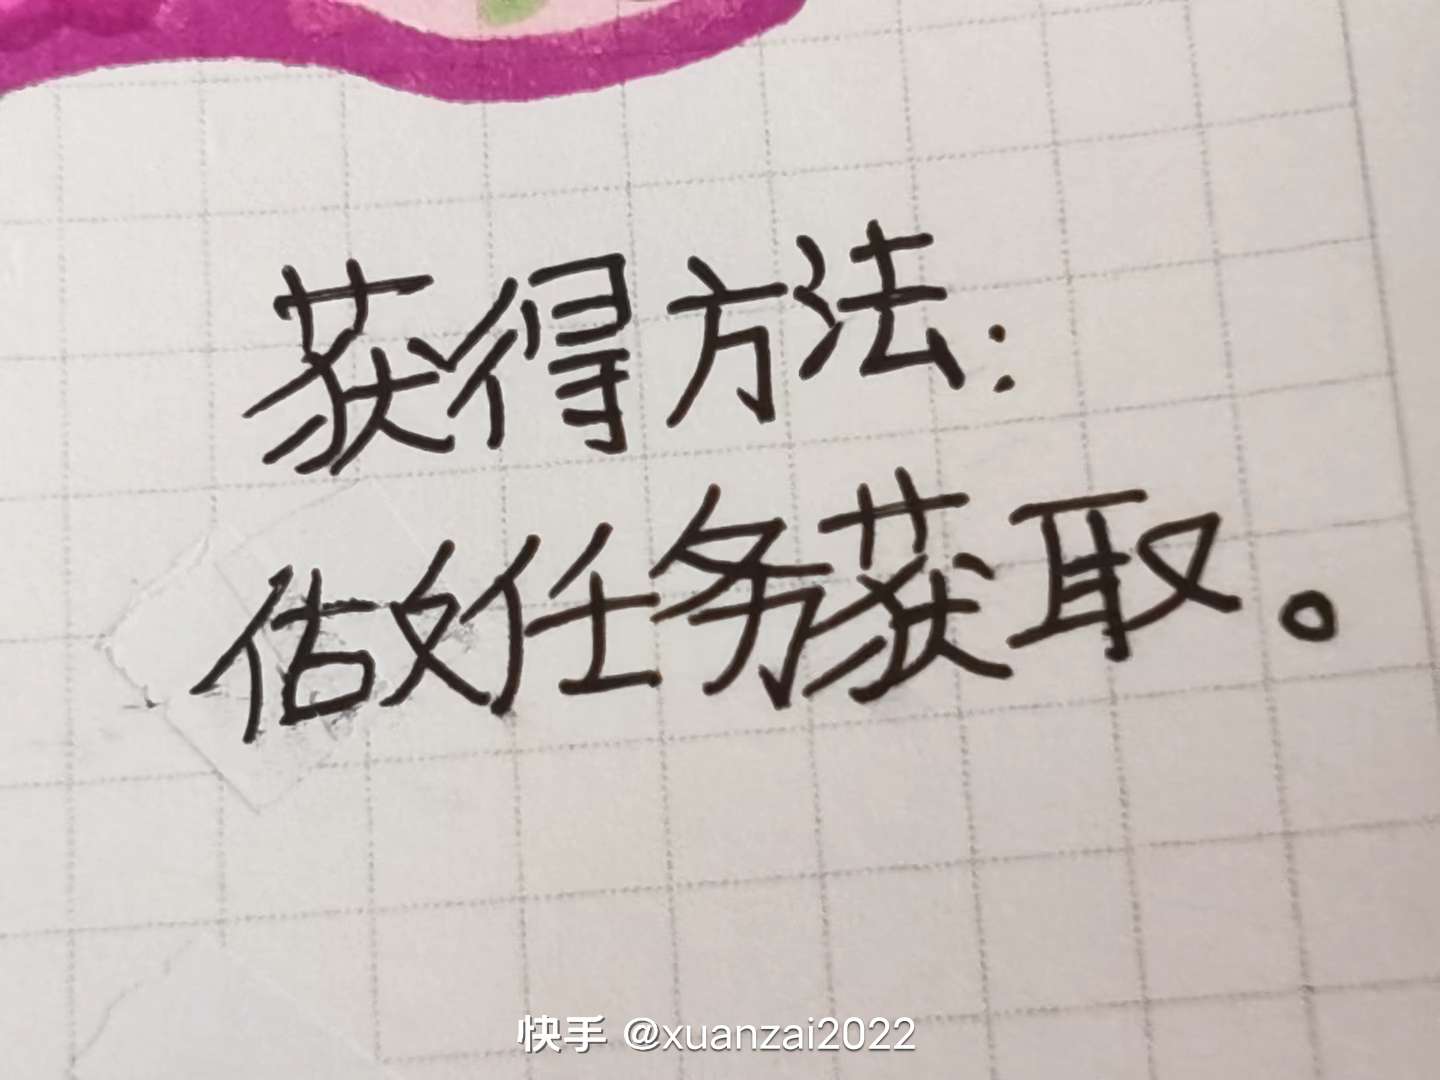 获得方法:
做任务获取。
快手 @xuanzai2022